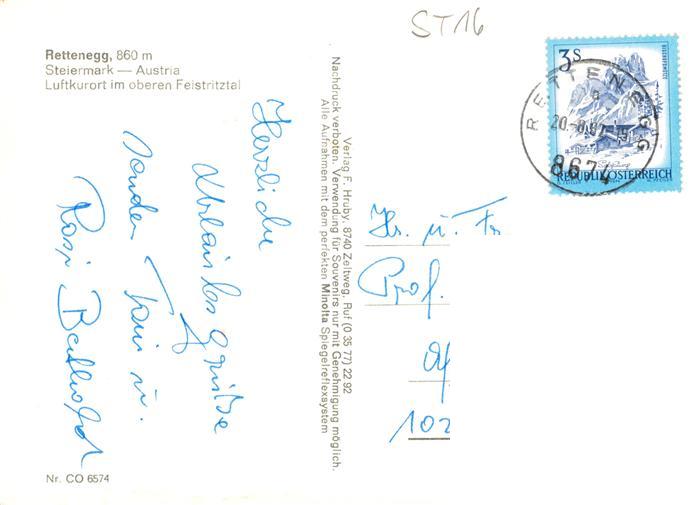 ST16
Rettenegg, 860 m
Steiermark — Austria
Luftkurort im oberen Feistritztal
3s
REPUBLIK ÖSTERREICH
RETTENEGG
8674
Herzliche
Urlaubsgrüße
senden
u.
Rosi
Verlag F. Hruby, 8740 Zeltweg, Ruf (0 35 77) 22 92
Nachdruck verboten. Verwendung für Souvenirs nur mit Genehmigung möglich.
Alle Aufnahmen mit dem perfekten Minolta Spiegelreflexsystem
Hr. u. Fr.
Prof.
102
Nr. CO 6574